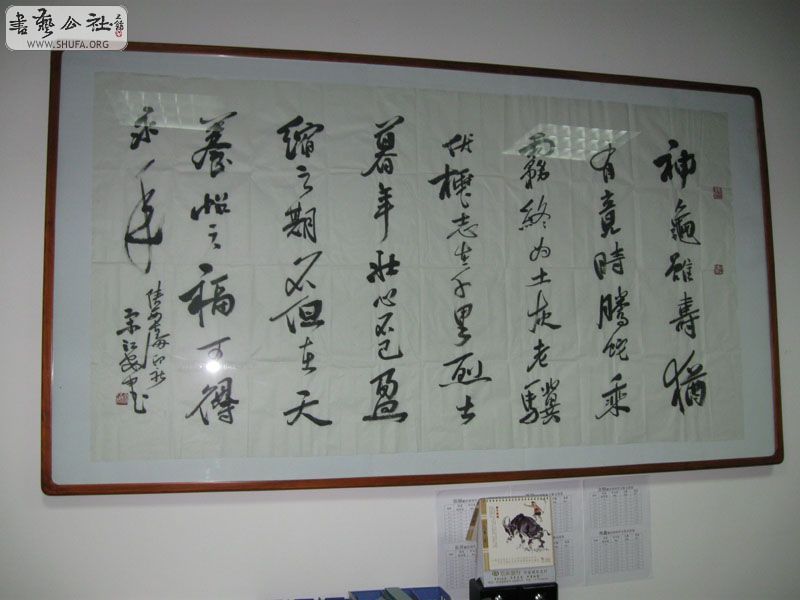 書藝公社
WWW.SHUFA.ORG
神龜雖壽猶
有竟時騰蛇乘
霧終为土灰老驥
伏櫪志在千里烈士
暮年壮心不已盈
縮之期不但在天
養怡之福可得
永年